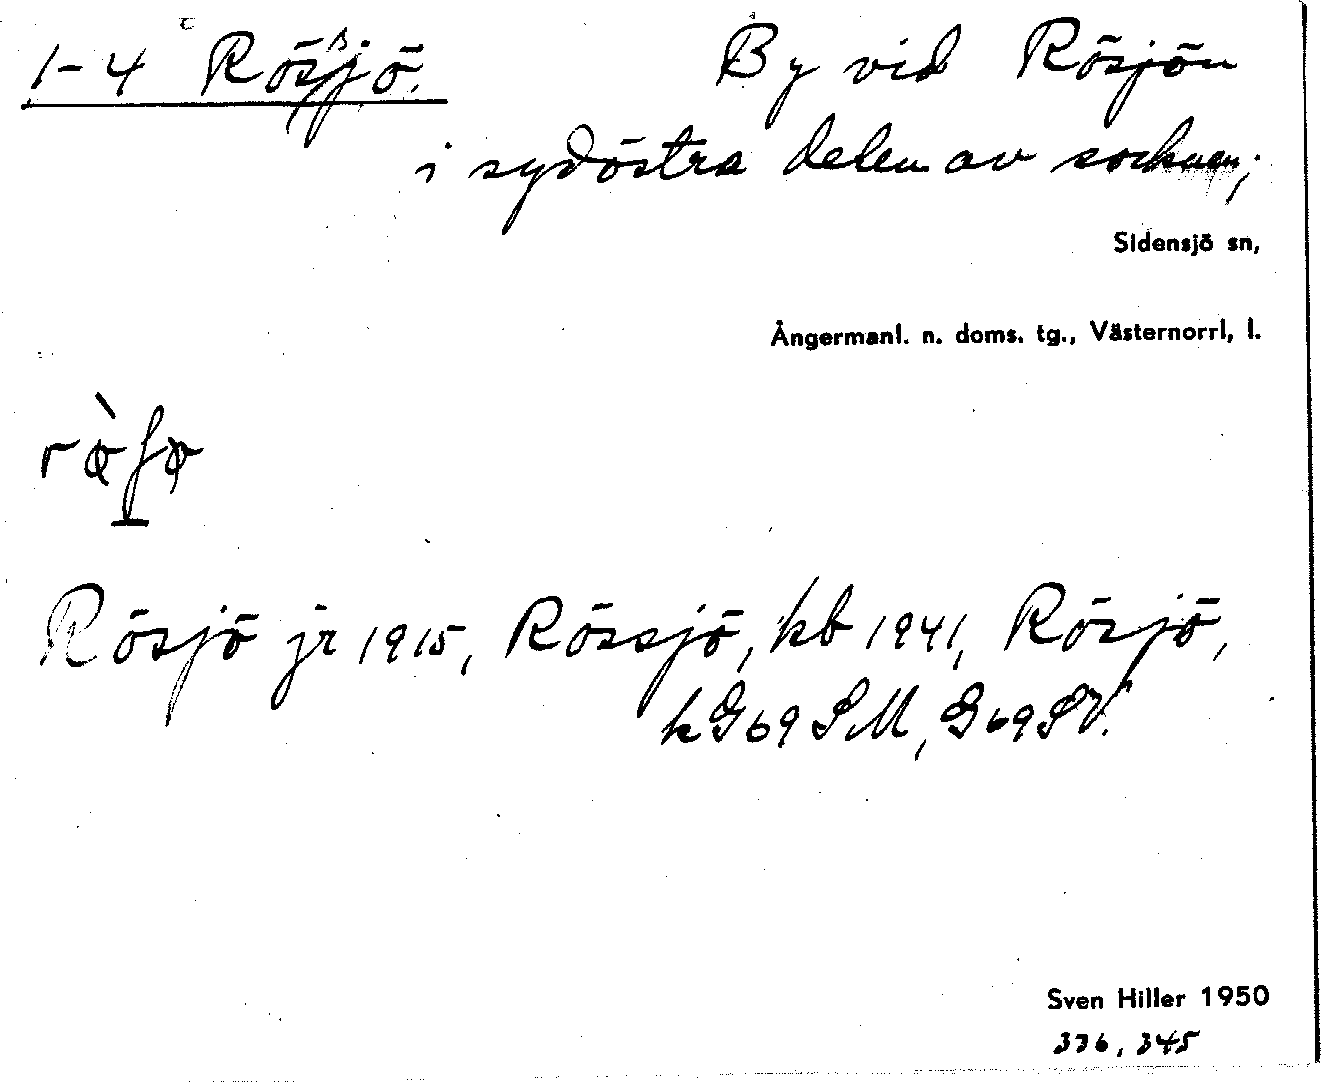 1-4 Rösjö. By vid Rösjön
i sydöstra delen av socknen;
Sidensjö sn,
Ångermanl. n. doms. tg., Västernorrl. l.
Rösjö jr 1915, Rössjö, kb 1941, Rösjö,
kG69SM, G69SV.
Sven Hiller 1950
336, 345